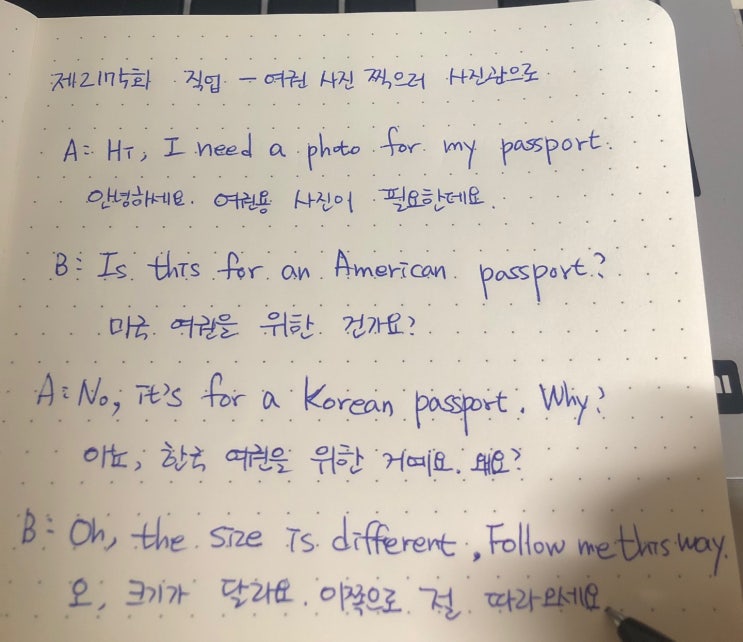 제2175화 직업 - 여권 사진 찍으러 사진관으로
A: Hi, I need a photo for my passport.
안녕하세요. 여권용 사진이 필요한데요.
B: Is this for an American passport?
미국 여권을 위한 건가요?
A: No, it's for a Korean passport. Why?
아뇨, 한국 여권을 위한 거예요. 왜요?
B: Oh, the size is different. Follow me this way.
오, 크기가 달라요. 이쪽으로 절 따라오세요